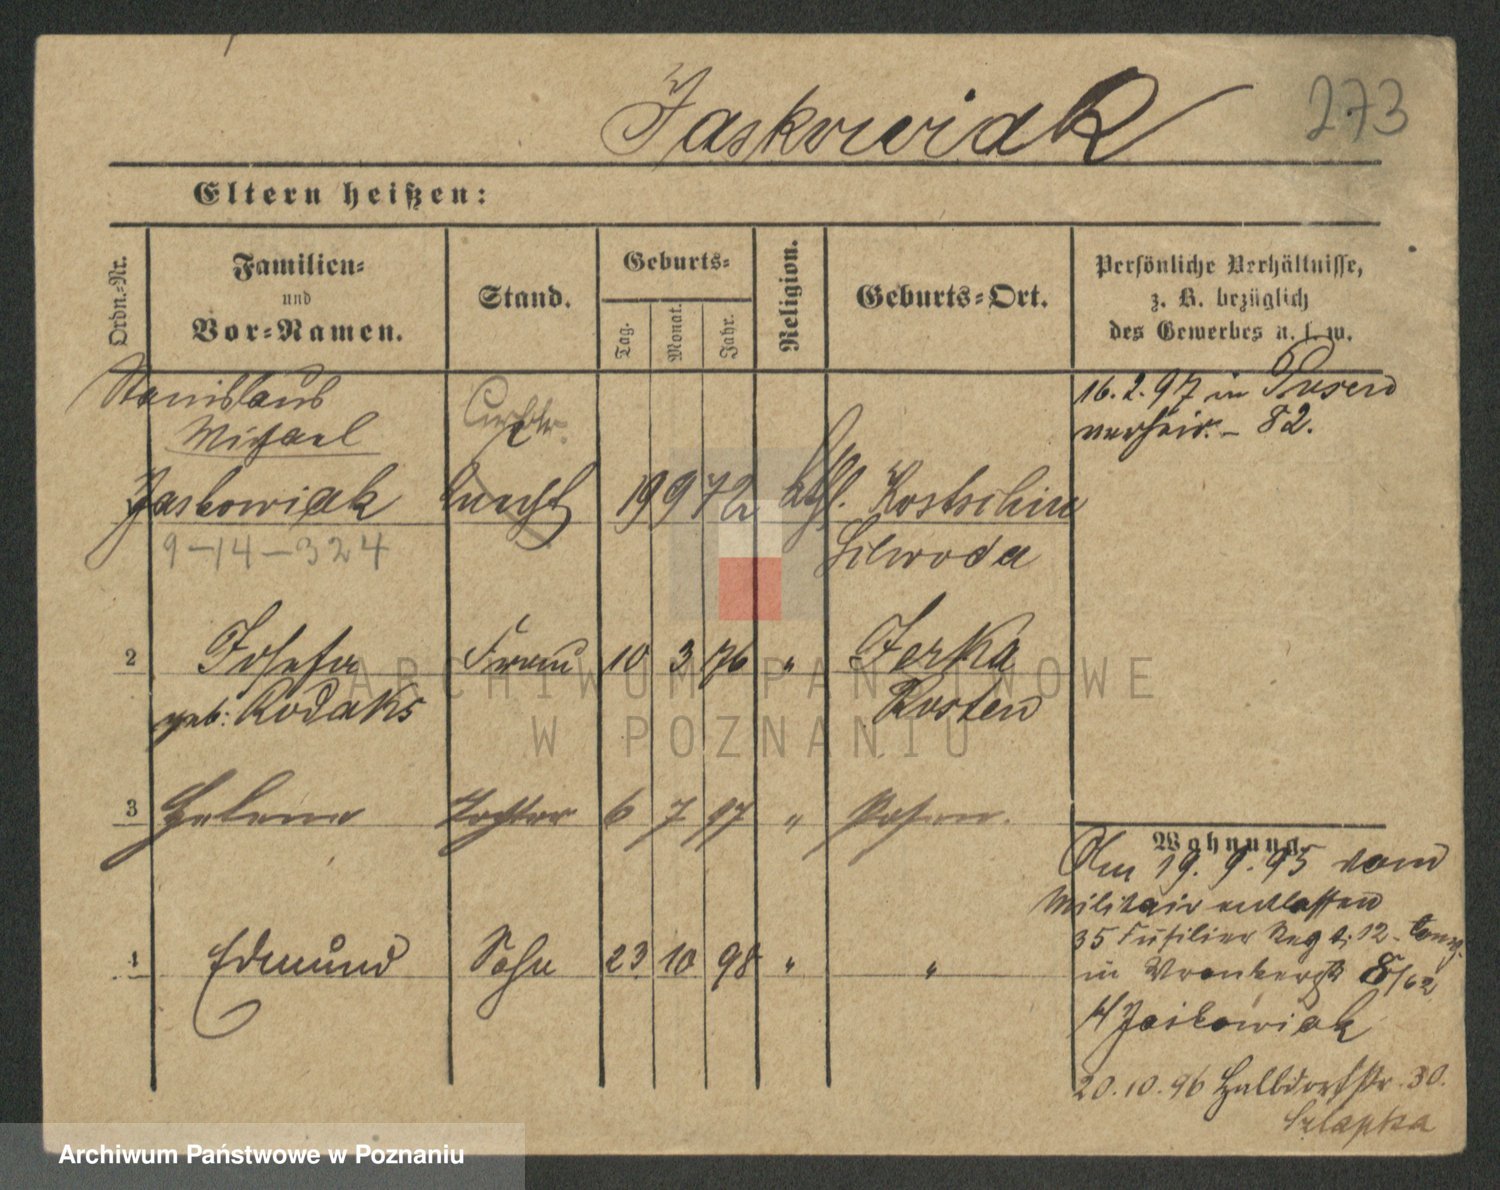 Jaskowiak
273
Eltern heißen:
Ordn.-Nr.
Familien-
und
Vor-Namen.
Stand.
Geburts-
Tag.
Monat.
Jahr.
Religion.
Geburts-Ort.
Persönliche Verhältnisse,
z. B. bezüglich
des Gewerbes u. s. w.
Stanislaus
Michael
Jaskowiak
Knecht
19 9 72
kth.
Kostschin
9-14-324
Schroda
16.2.97 in Posen
verheir. - 82.
2
Josefa
Frau
10 3 76
"
Jerka
geb. Rodaks
Kosten
3
Helene
Tochter
6 7 97
"
Posen.
4
Edmund
Sohn
23 10 98
"
"
Wohnung
Am 19.9.95 vom
Militair entlassen
35 Füsilier Regt. 12. Comp.
in
Jaskowiak
20.10.96 Halbdorfstr. 30.
Szlapka
ARCHIWUM PAŃSTWOWE
W POZNANIU
Archiwum Państwowe w Poznaniu